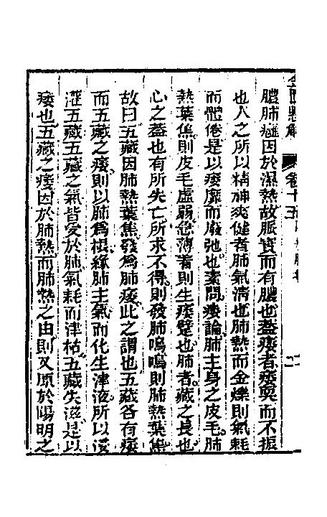 膿肺癰因於濕熱故脈實而有膿也蓋痿者痿耎而不振
也人之所以精神爽健者肺氣清也肺熱而金爍則氣耗
而體倦是以痿靡而廢弛也素問痿論肺主身之皮毛肺
熱葉焦則皮毛虛弱急薄著則生痿躄也肺者藏之長也
心之蓋也有所失亡所求不得則發肺鳴鳴則肺熱葉焦
故曰五藏因肺熱葉焦發為肺痿此之謂也五藏各有痿
而五藏之痿則以肺為根緣肺主氣而化生津液所以浸
灌五藏五藏之氣皆受於肺氣耗而津枯五藏失滋是以
痿也五藏之痿因於肺熱而肺熱之由則又原於陽明之
卷十五
二